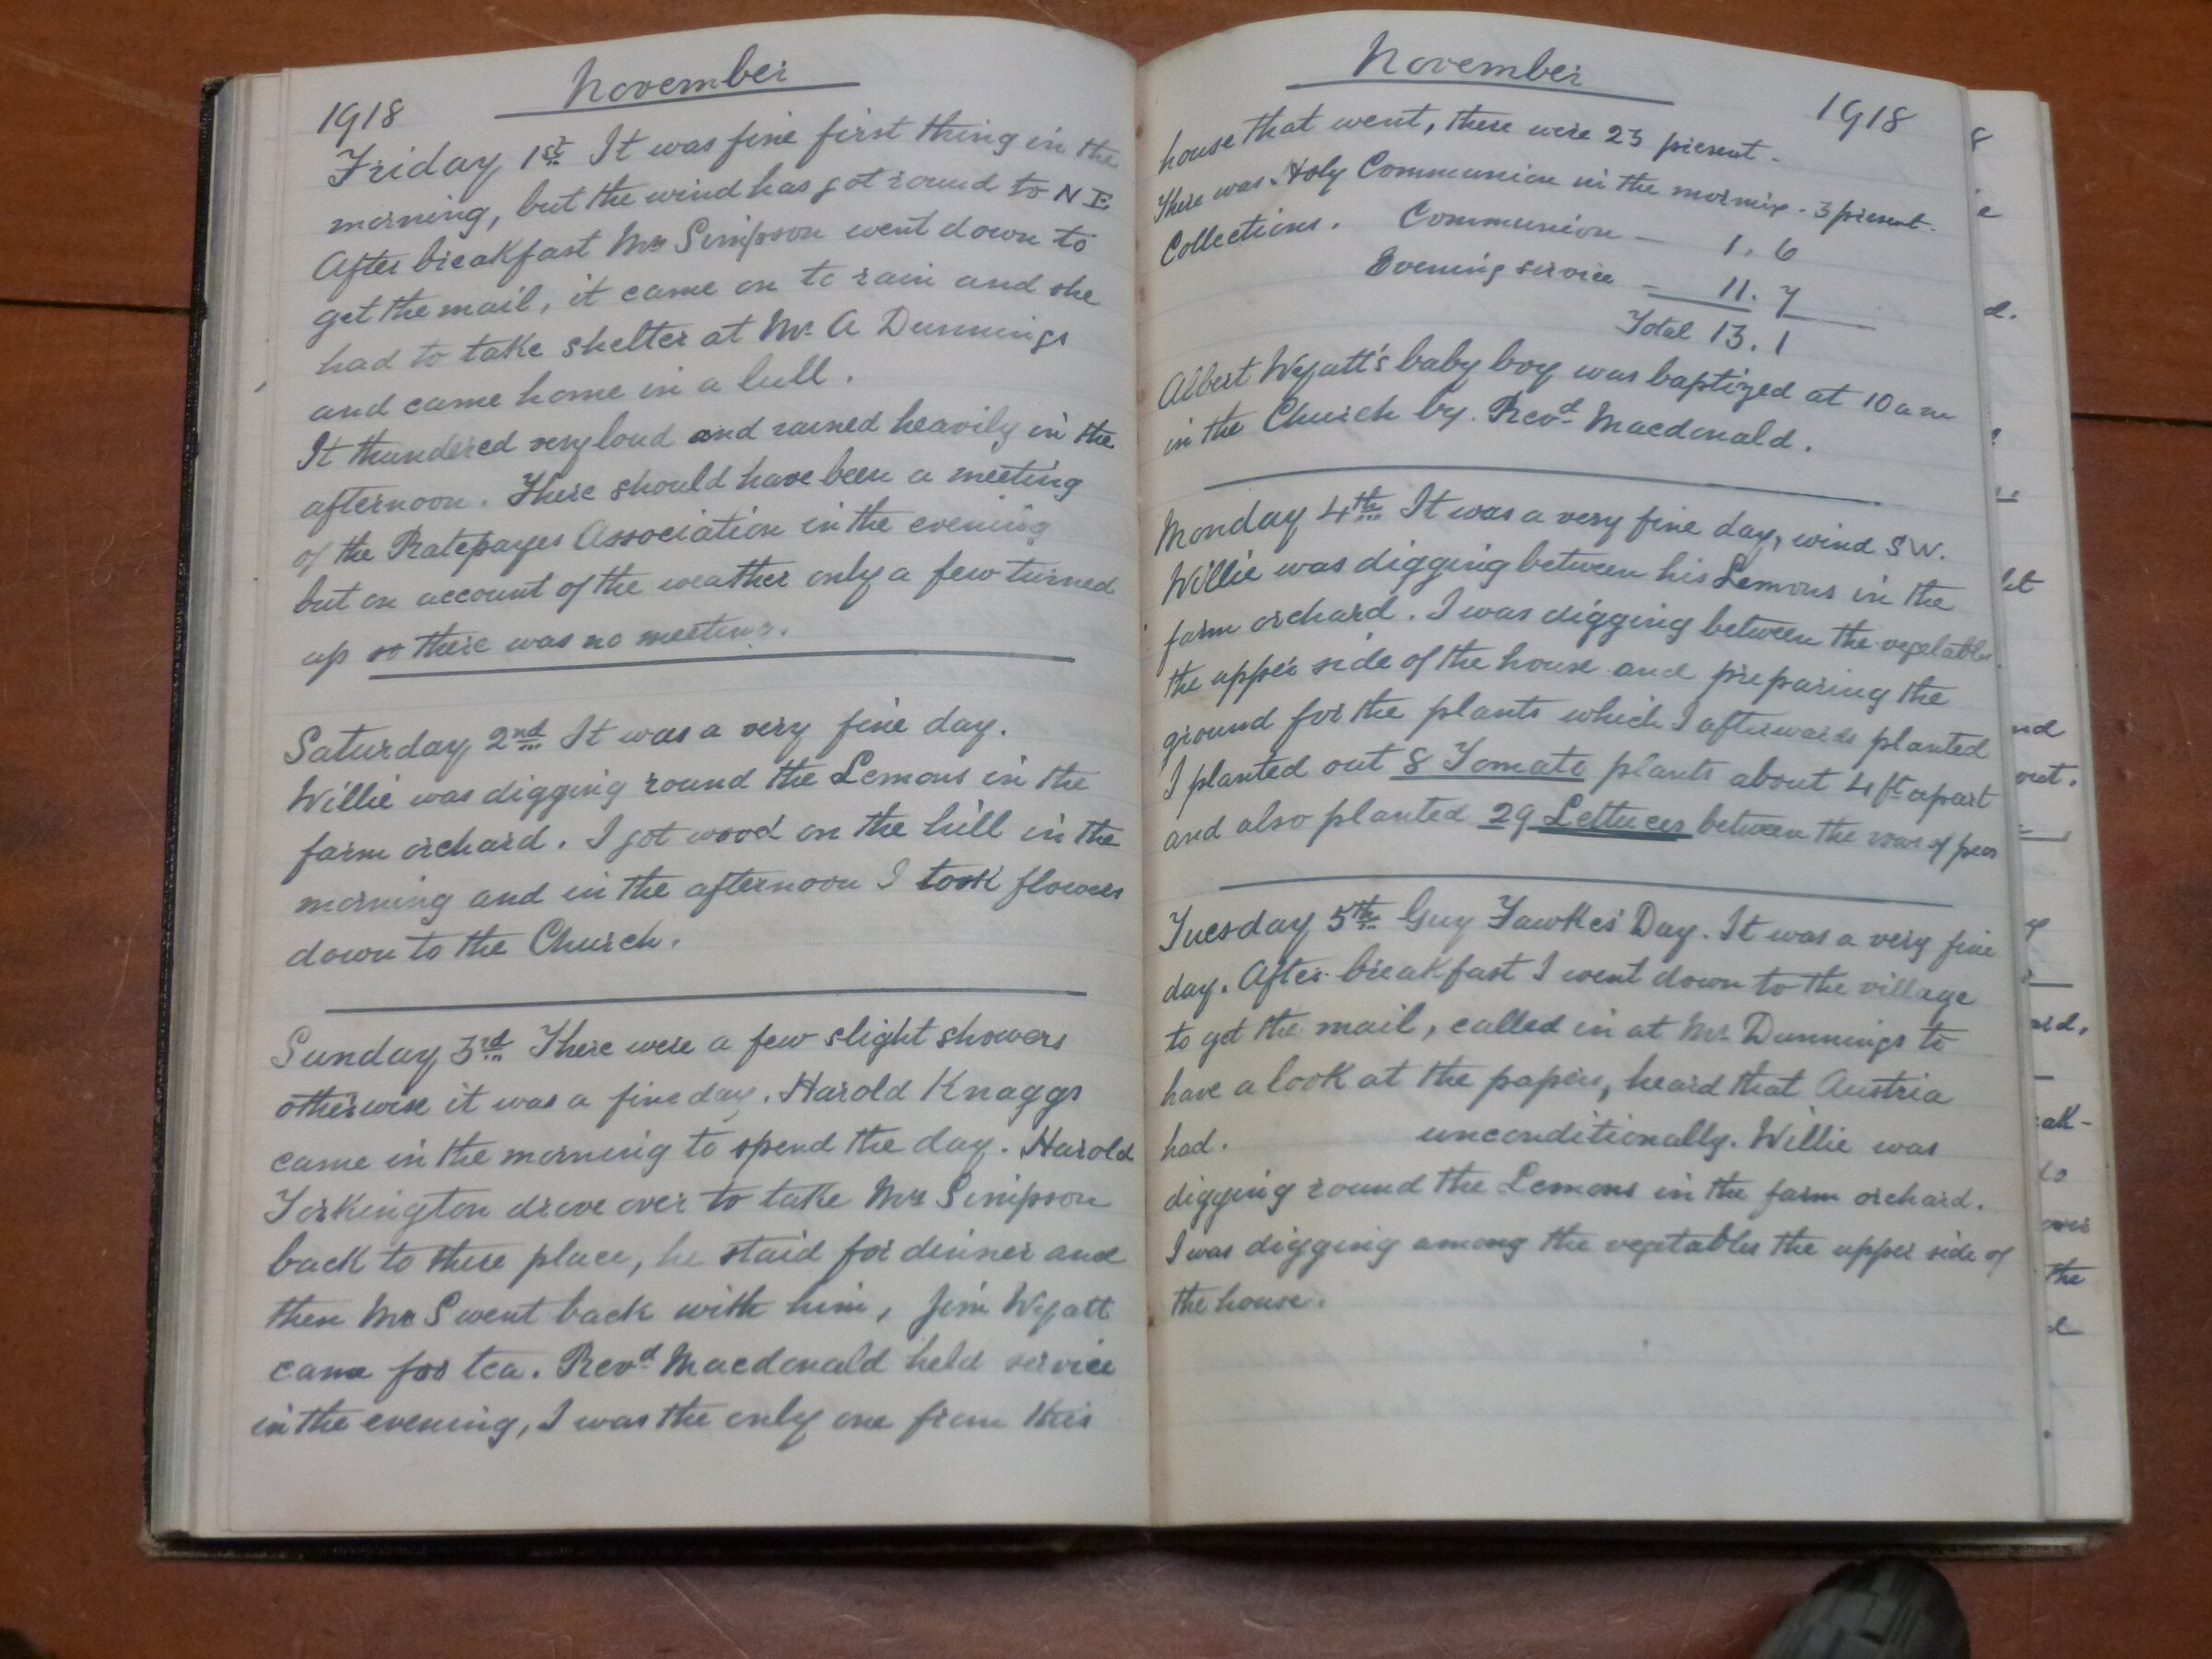 November
1918
Friday 1st It was fine first thing in the
morning, but the wind has got round to N E
After breakfast Mrs Simpson went down to
get the mail, it came on to rain and she
had to take shelter at Mr A Dunnings
and came home in a lull.
It thundered very loud and rained heavily in the
afternoon. There should have been a meeting
of the Ratepayes Association in the evening
but on account of the weather only a few turned
up so there was no meeting.
Saturday 2nd It was a very fine day.
Willie was digging round the Lemons in the
farm orchard. I got wood on the hill in the
morning and in the afternoon I took flowers
down to the Church.
Sunday 3rd There were a few slight showers
otherwise it was a fine day. Harold Knaggs
came in the morning to spend the day. Harold
Torkington drove over to take Mrs Simpson
back to there place, he staid for dinner and
then Mrs S went back with him, Jim Wyatt
came for tea. Revd Macdonald held service
in the evening, I was the only one from this
November
1918
house that went, there were 23 present.
There was Holy Communion in the morning. 3 present.
Collections. Communion — 1. 6
Evening service — 11. 7
Total 13. 1
Albert Wyatt's baby boy was baptized at 10 am
in the Church by. Revd Macdonald.
Monday 4th It was a very fine day, wind SW.
Willie was digging between his Lemons in the
farm orchard. I was digging between the vegetables
the upper side of the house and preparing the
ground for the plants which I afterwards planted
I planted out 8 Tomato plants about 4 ft apart
and also planted 29 Lettuces between the rows of peas
Tuesday 5th Guy Fawkes' Day. It was a very fine
day. After breakfast I went down to the village
to get the mail, called in at Mr Dunnings to
have a look at the papers, heard that Austria
had. unconditionally. Willie was
digging round the Lemons in the farm orchard.
I was digging among the vegetables the upper side of
the house.